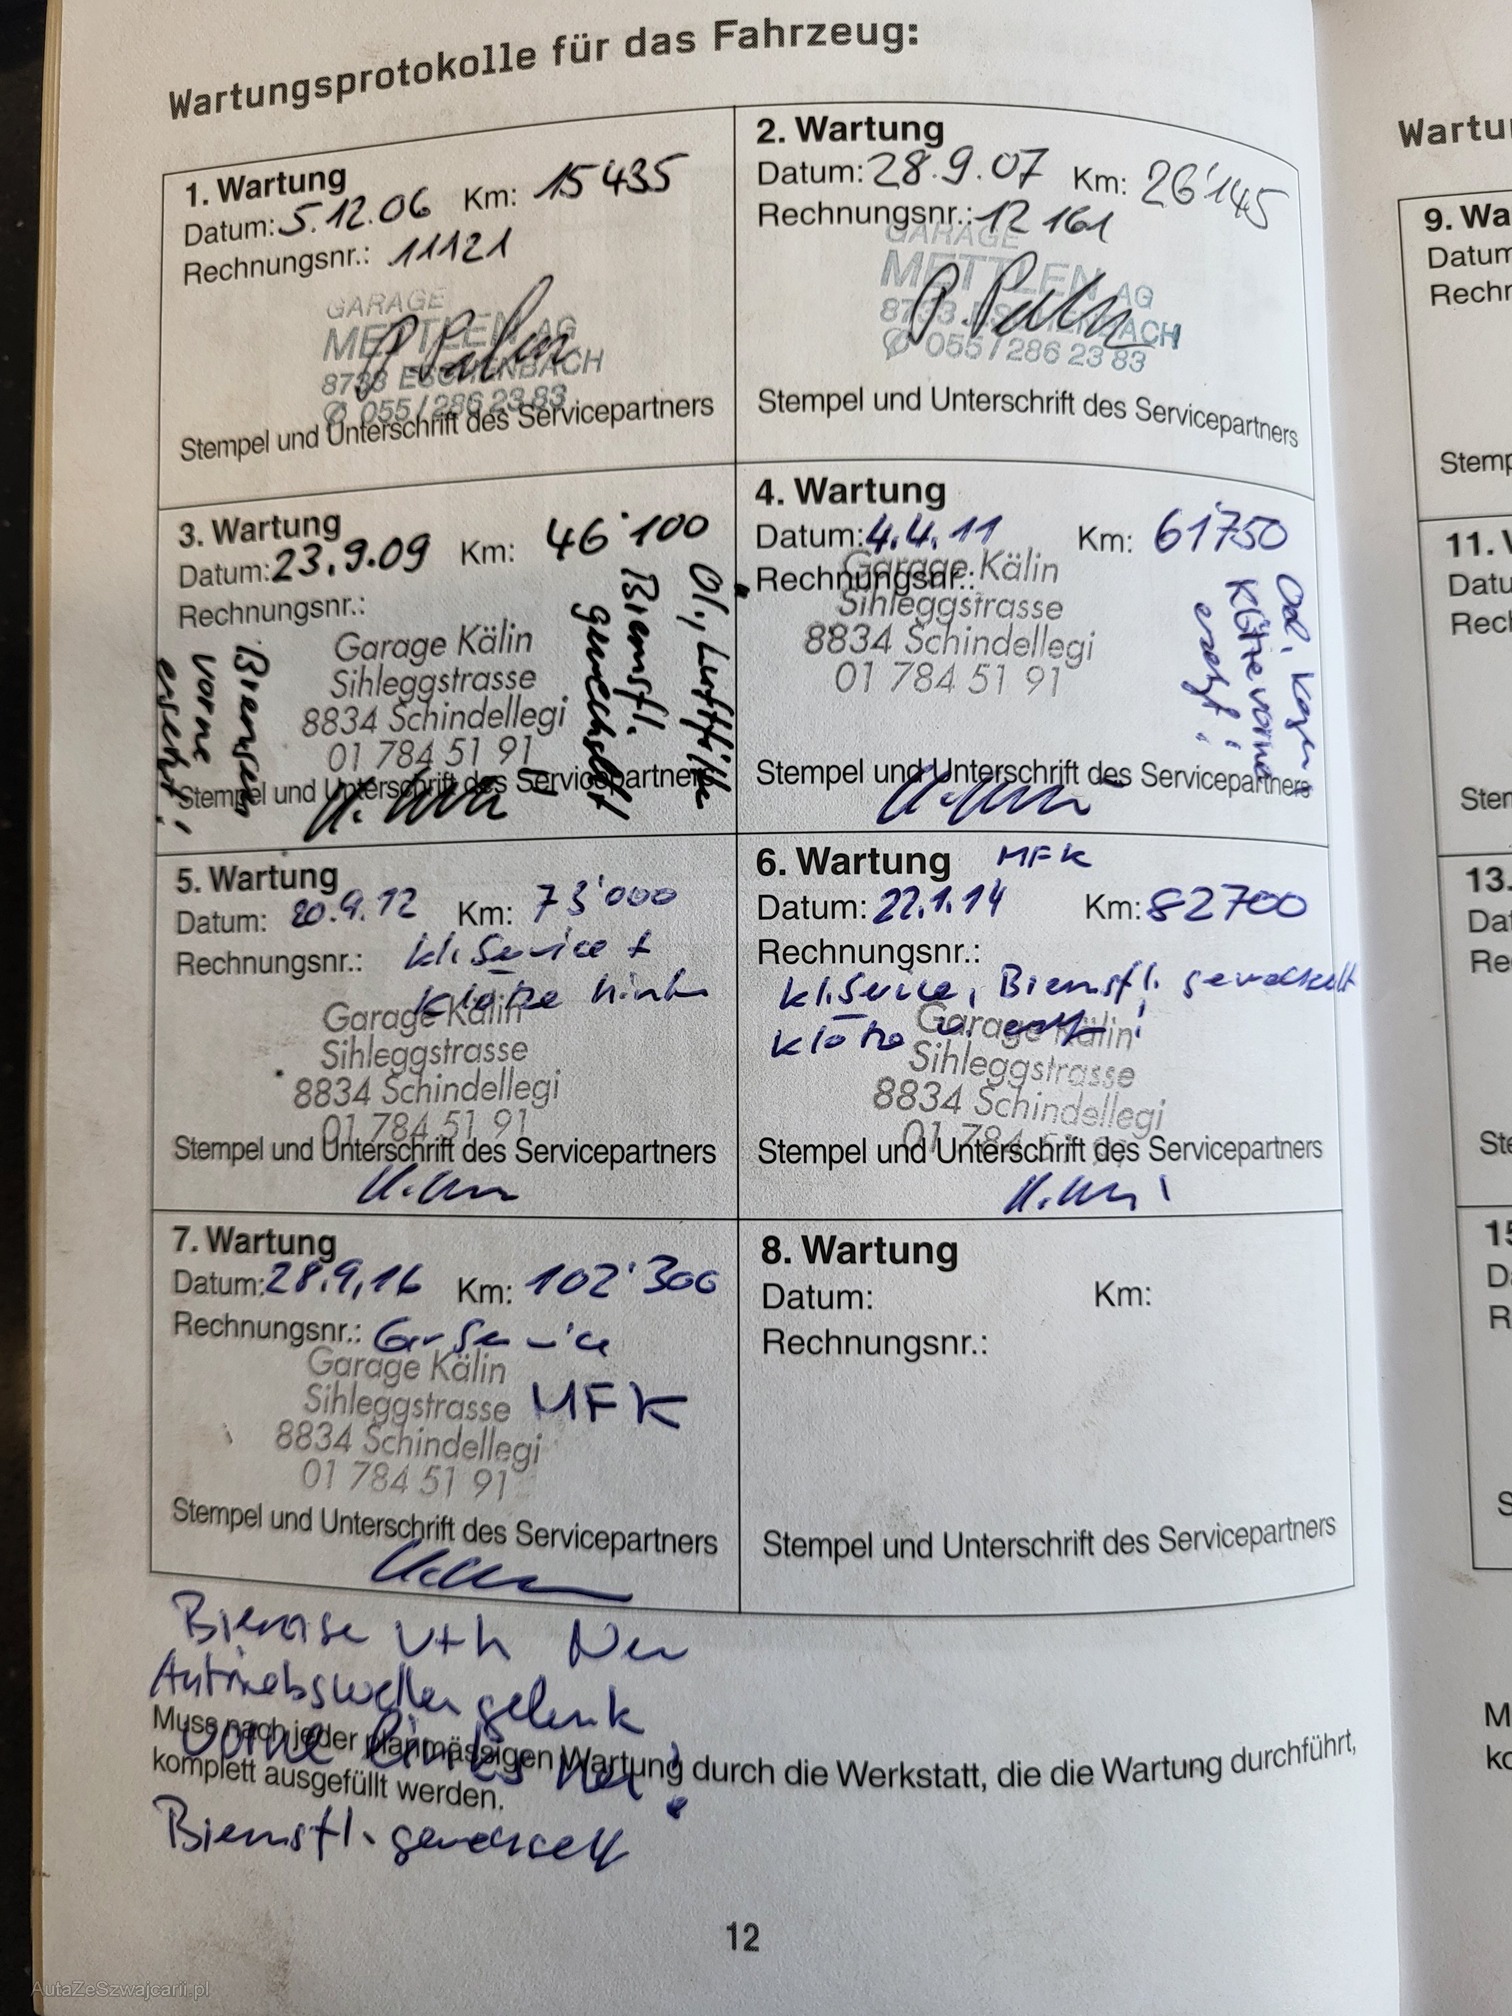 Wartungsprotokolle für das Fahrzeug:
1. Wartung
Datum: 5.12.06 Km: 15435
Rechnungsnr.: 11121
GARAGE
METTLEN AG
8733 ESCHENBACH
055/286 23 83
Stempel und Unterschrift des Servicepartners
2. Wartung
Datum: 28.9.07 Km: 26'145
Rechnungsnr.: 12161
GARAGE
METTLEN AG
8733 ESCHENBACH
055/286 23 83
Stempel und Unterschrift des Servicepartners
3. Wartung
Datum: 23.9.09 Km: 46'100
Rechnungsnr.:
Garage Kälin
Sihleggstrasse
8834 Schindellegi
01 784 51 91
Öl, Luftfilter
Bremsfl.
gewechselt
Bremsen
vorne
ersetzt!
Stempel und Unterschrift des Servicepartners
4. Wartung
Datum: 4.4.11 Km: 61'750
Rechnungsnr.:
Garage Kälin
Sihleggstrasse
8834 Schindellegi
01 784 51 91
Klötze vorne
ersetzt!
Stempel und Unterschrift des Servicepartners
5. Wartung
Datum: 20.9.12 Km: 73'000
Rechnungsnr.: kl. Service +
Klötze hinten
Garage Kälin
Sihleggstrasse
8834 Schindellegi
01 784 51 91
Stempel und Unterschrift des Servicepartners
6. Wartung MFK
Datum: 22.1.14 Km: 82700
Rechnungsnr.:
kl. Service, Bremsfl. gewechselt
Klötze
Garage Kälin
Sihleggstrasse
8834 Schindellegi
01 784
Stempel und Unterschrift des Servicepartners
7. Wartung
Datum: 28.9.16 Km: 102'300
Rechnungsnr.: Gr Service
Garage Kälin
Sihleggstrasse MFK
8834 Schindellegi
01 784 51 91
Stempel und Unterschrift des Servicepartners
8. Wartung
Datum: Km:
Rechnungsnr.:
Stempel und Unterschrift des Servicepartners
Bremse v+h Neu
Antriebswellengelenk
vorne links neu!
Muss nach jeder planmässigen Wartung durch die Werkstatt, die die Wartung durchführt,
komplett ausgefüllt werden.
Bremsfl. gewechselt
12
Wartu
9. Wa
Datum
Rechn
Stemp
11. W
Datu
Rech
Sten
13.
Dat
Re
Ste
15
D
R
S
M
ko
AutaZeSzwajcarii.pl